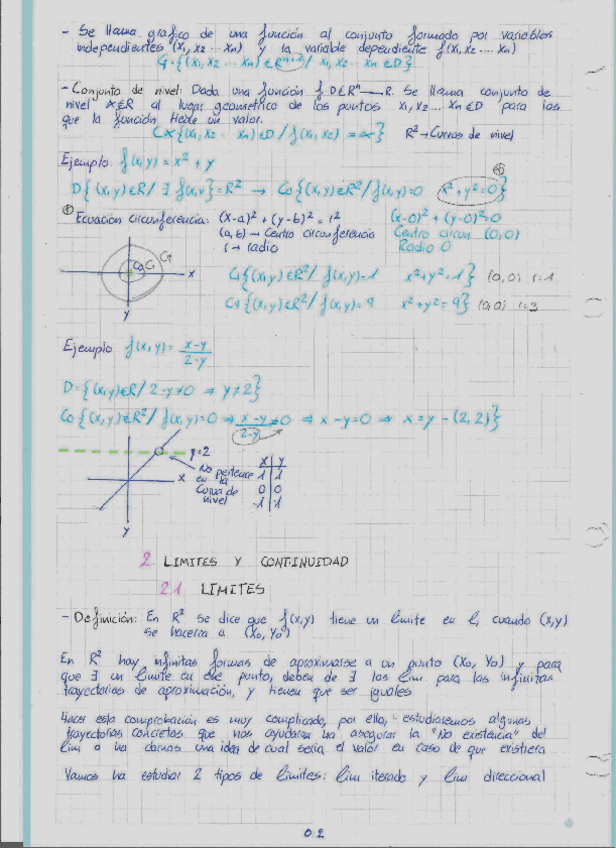 - Se llama grafico de una función al conjunto formado por variables
independientes (x₁, x₂ ... xₙ) y la variable dependiente f(x₁, x₂ ... xₙ)
G={(x₁, x₂ ... xₙ) ∈ Rⁿ⁺¹/ x₁, x₂ ... xₙ ∈ D}
- Conjunto de nivel: Dada una función f D∈Rⁿ→R. Se llama conjunto de
nivel α∈R al lugar geometrico de los puntos x₁, x₂... xₙ∈D para los
que la función tiene un valor.
Cα{(x₁, x₂ ... xₙ)∈D/f(x₁, x₂)=α} R²→Curvas de nivel
Ejemplo: f(x,y)=x²+y
D{(x,y)∈R/ ∃ f(x,y)}=R² → C₀{(x,y)∈R²/f(x,y)=0 x²+y²=0}
Ecuación circunferencia: (x-a)²+(y-b)²=r² (x-0)²+(y-0)²=0
(a,b)→Centro circunferencia Centro circun (0,0)
r→radio Radio 0
x
y
C₁{(x,y)∈R²/f(x,y)=1 x²+y²=1} (0,0) r=1
C₉{(x,y)∈R²/f(x,y)=9 x²+y²=9} (0,0) r=3
Ejemplo f(x,y)= x-y / 2-y
D={(x,y)∈R/2-y≠0 ⇒ y≠2}
C₀{(x,y)∈R²/f(x,y)=0 ⇒ x-y / 2-y =0 ⇒ x-y=0 ⇒ x=y-(2,2)}
y=2
No pertenece
en la
Curva de
nivel
x
y
x y
1 1
0 0
-1 -1
2. LIMITES Y CONTINUIDAD
2.1. LIMITES
- Definición: En R² se dice que f(x,y) tiene un limite en l, cuando (x,y)
se hacerca a (x₀, y₀)
En R² hay infinitas formas de aproximarse a un punto (x₀, y₀) y para
que ∃ un limite en ese punto, deben de ∃ los lim para las infinitas
trayectorias de aproximación, y tienen que ser iguales
Hacer esta comprobación es muy complicado, por ello, estudiaremos algunas
trayectorias concretas que nos ayudaran ha asegurar la "No existencia" del
lim o ha darnos una idea de cual seria el valor en caso de que existiera
Vamos ha estudiar 2 tipos de limites: lim iterado y lim direccional
02